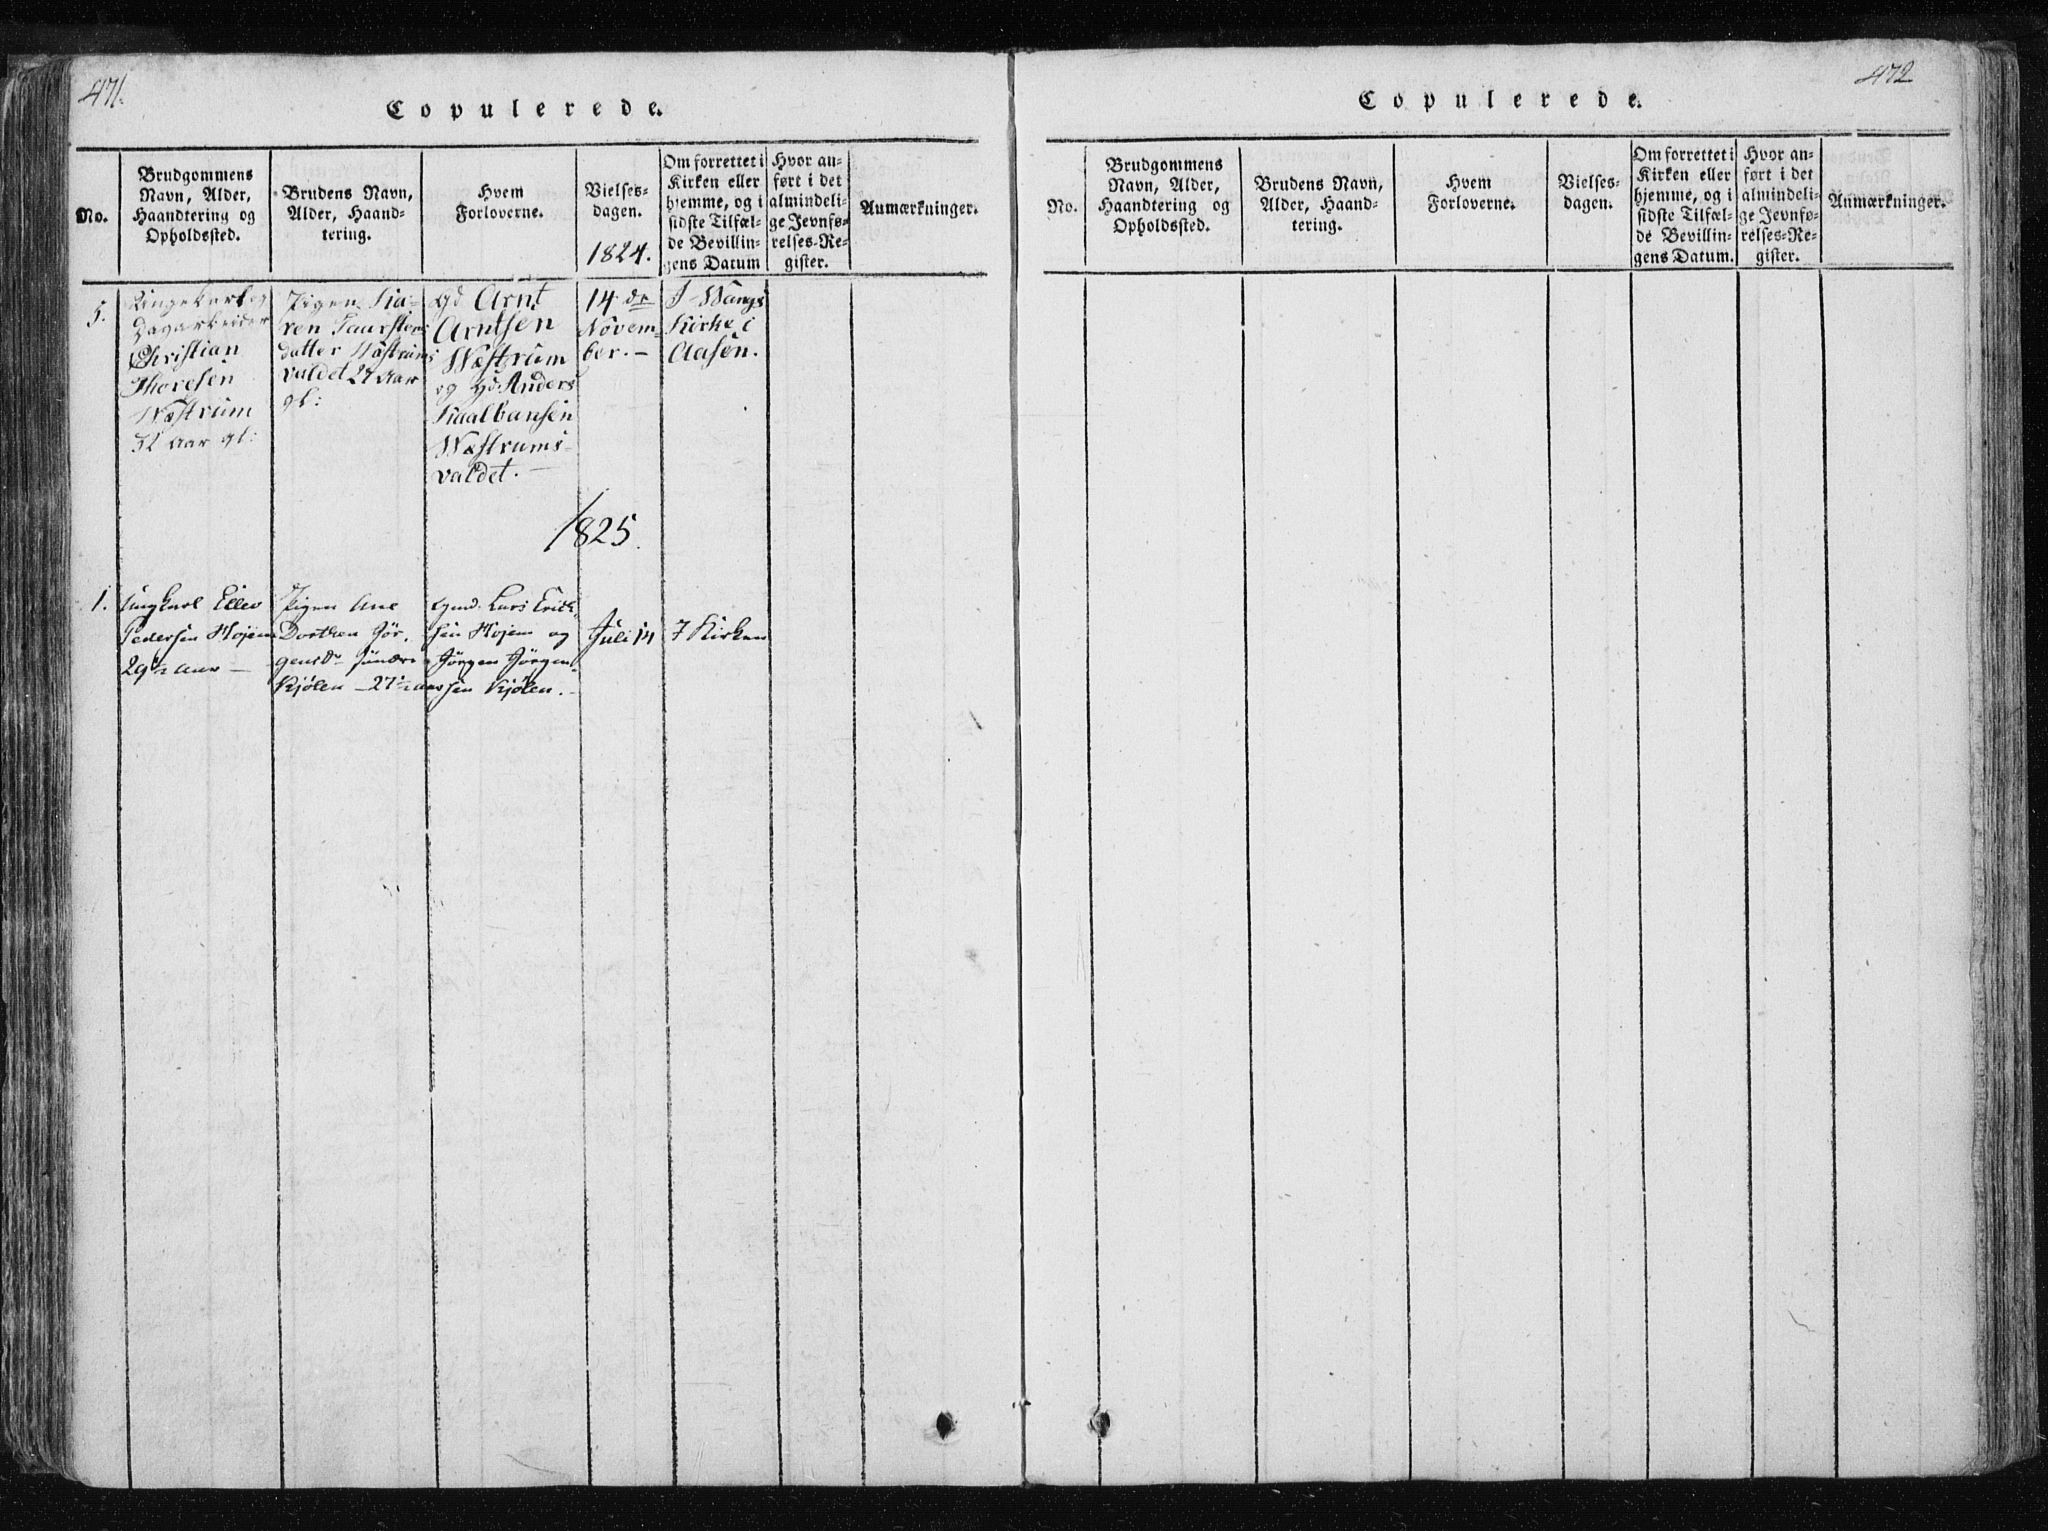 471.
Copulerede.
No.
Brudgommens
Navn, Alder,
Haandtering og
Opholdssted.
Brudens Navn,
Alder, Haand-
tering.
Hvem
Forloverne.
Vielses-
dagen.
1824.
Om forrettet i
Kirken eller
hjemme, og i
sidste Tilfæl-
de Bevillin-
gens Datum
Hvor an-
ført i det
almindeli-
ge Jevnfø-
relses-Re-
gister.
Anmærkninger.
5.
Ungekarl og
Dagarbeider
Christian
Thoresen
Wæstrum
32 Aar gl:
Pigen Ka-
ren Laursten
datter Wæstrums
valdet 27 Aar
gl:
Gd. Arnt
Arntsen
Wæstrum
og Gd. Anders
Kaalbansen
Wæstrums-
valdet. —
14 de
Novem-
ber. —
I Wangs
Kirke i
Aasen.
1825.
1.
Ungkarl Ellev
Pedersen Hojem
29½ Aar —
Pigen Ane
Dorthea Jør-
gensdr
Kjølen — 27½ Aar
Gmd. Lars Erik-
sen Hojem og
Jørgen Jørgen-
sen Kjølen. —
Juli 14
I Kirken
472
Copulerede.
No.
Brudgommens
Navn, Alder,
Haandtering og
Opholdssted.
Brudens Navn,
Alder, Haand-
tering.
Hvem
Forloverne.
Vielses-
dagen.
Om forrettet i
Kirken eller
hjemme, og i
sidste Tilfæl-
de Bevillin-
gens Datum.
Hvor an-
ført i det
almindeli-
ge Jevnfø-
relses-Re-
gister.
Anmærkninger.